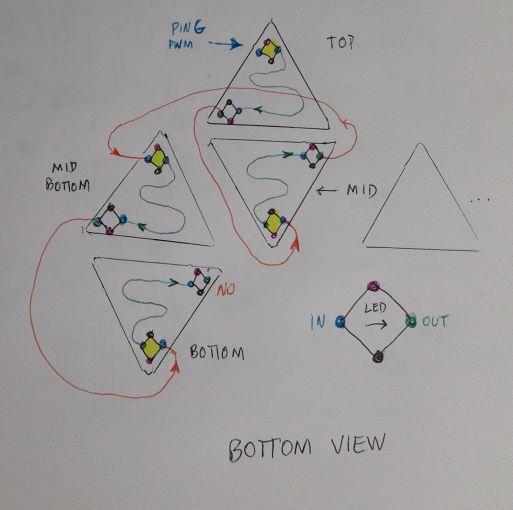 PING
PWM
TOP
MID
BOTTOM
MID
...
NO
BOTTOM
LED
IN → OUT
BOTTOM VIEW